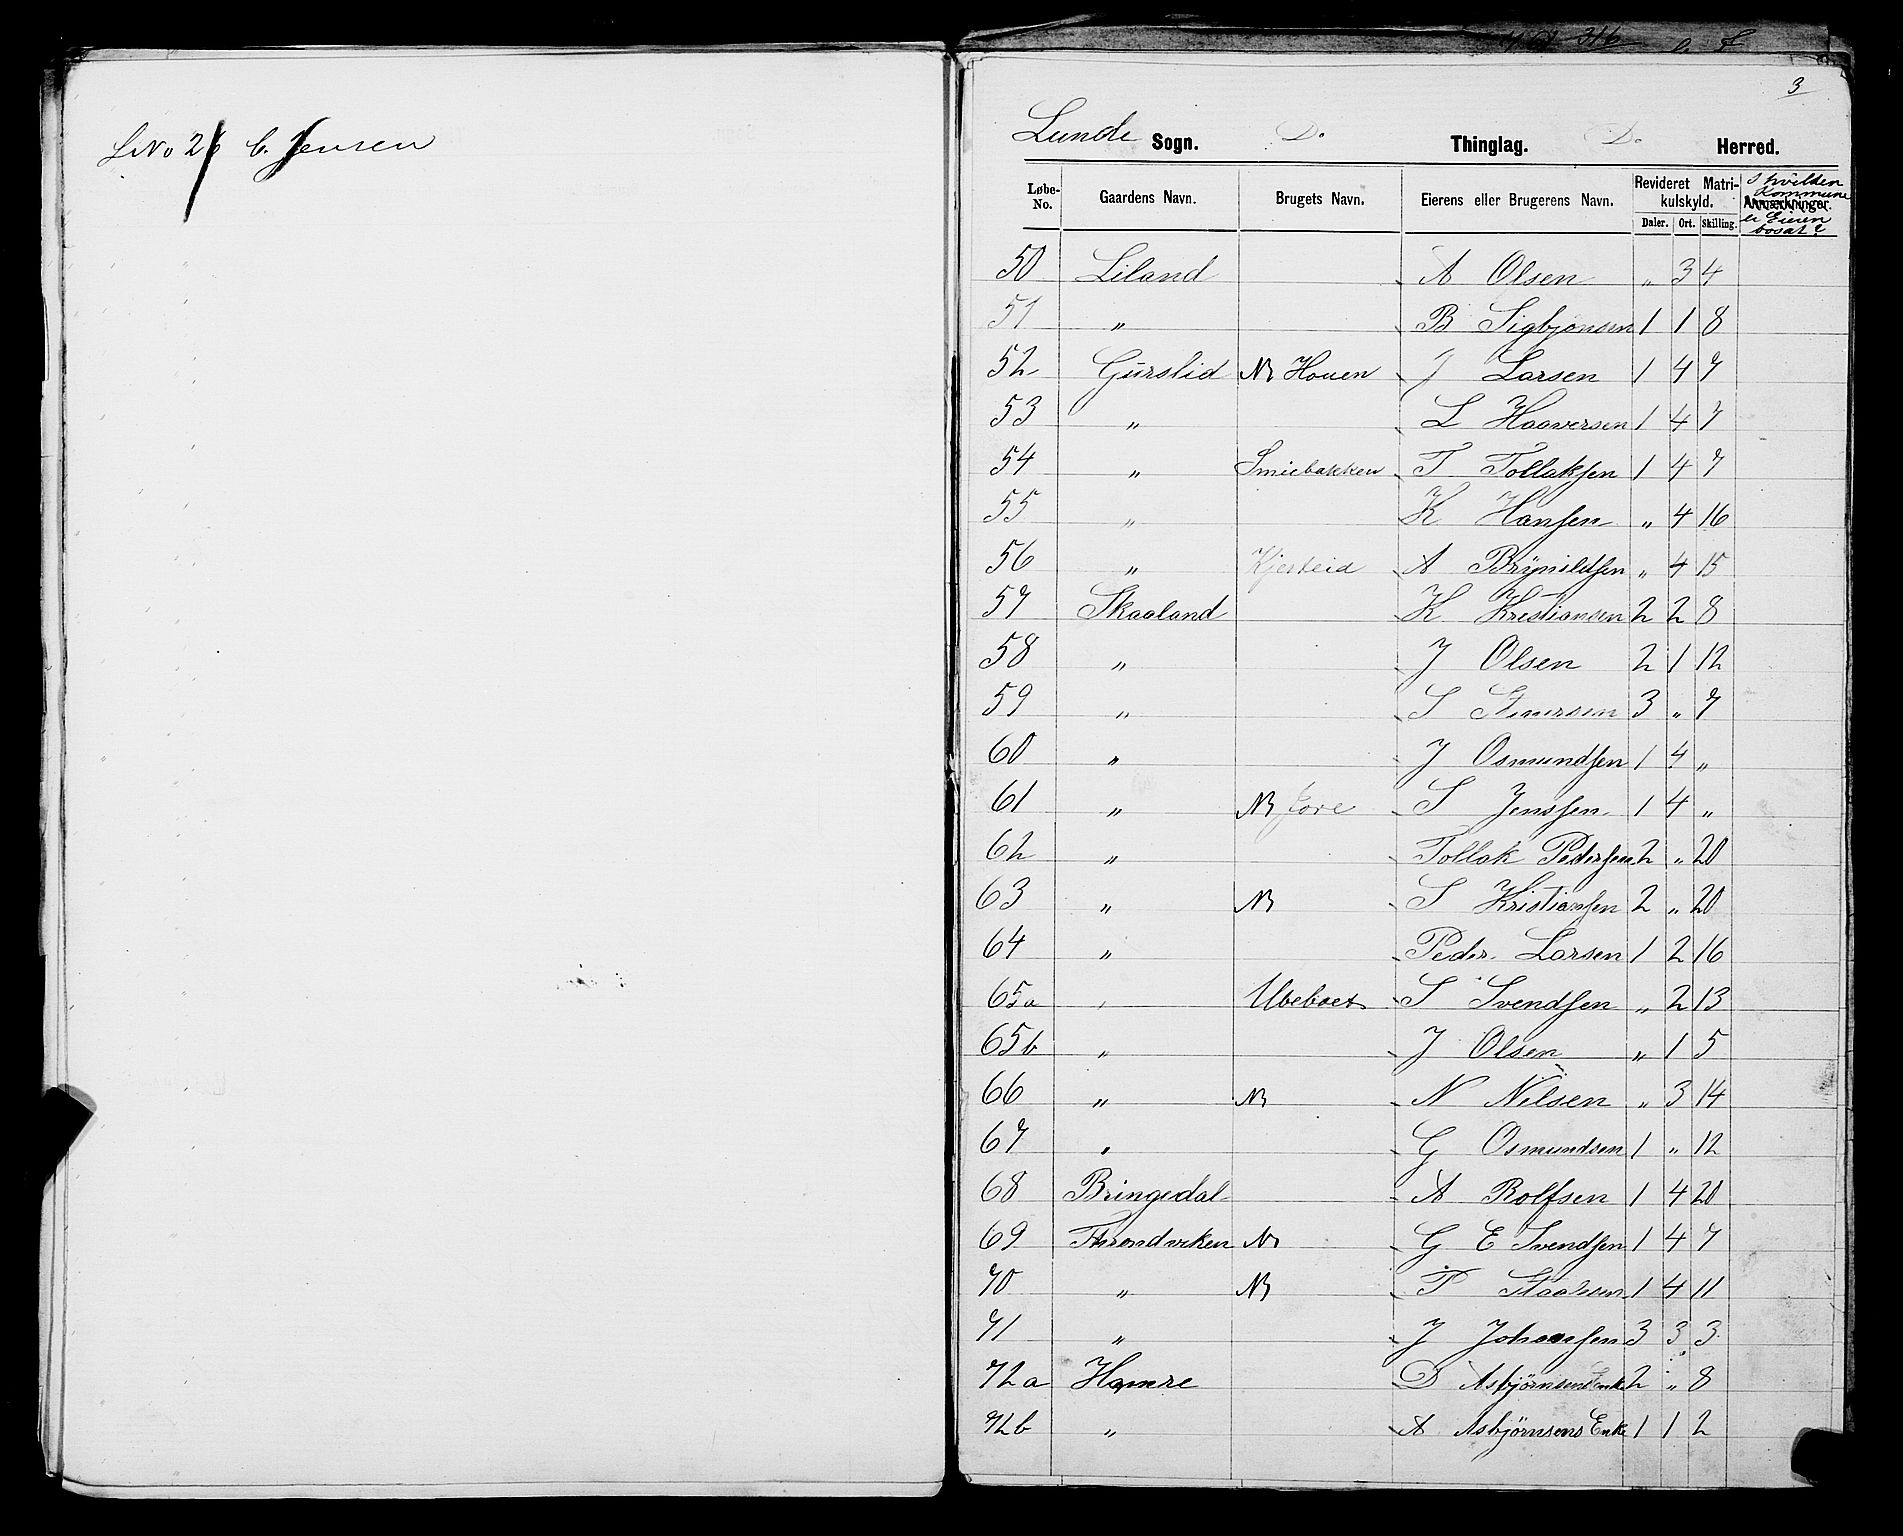 LNo 26 C. Jensen
316
3
Lunde Sogn. Do Thinglag. Do Herred.
Løbe-No. Gaardens Navn. Brugets Navn. Eierens eller Brugerens Navn. Revideret Matrikulskyld. Daler. Ort. Skilling. Anmærkninger. I hvilken Kommune er Eieren bosat?
50 Liland A Olsen " 3 4
51 " B Sigbjønsen 1 1 8
52 Gurslid NB Houen J Larsen 1 4 7
53 " L Haaversen 1 4 7
54 " Smiebakken T Tollaksen 1 4 7
55 " K Hansen " 4 16
56 " Kjerteid A Brynildsen " 4 15
57 Skaaland K Kristiansen 2 2 8
58 " J Olsen 2 1 12
59 " S 3 " 7
60 " J Osmundsen 1 4 "
61 " NB S Jenssen 1 4 "
62 " Tollak Pedersen 2 " 20
63 " NB S Kristiansen 2 " 20
64 " Peder Larsen 1 2 16
65a " Ubeboet S Svendsen " 2 13
65b " J Olsen " 1 5
66 " NB N Nilsen " 3 14
67 " G Osmundsen 1 " 12
68 Bringedal A Rolfsen 1 4 20
69 Throndviken NB G E Svendsen 1 4 7
70 " NB P Staalesen 1 4 11
71 " J Johansen 3 3 3
72a Hamre D Asbjørnsens Enke 2 " 8
72b " A Asbjørnsens Enke 1 1 2